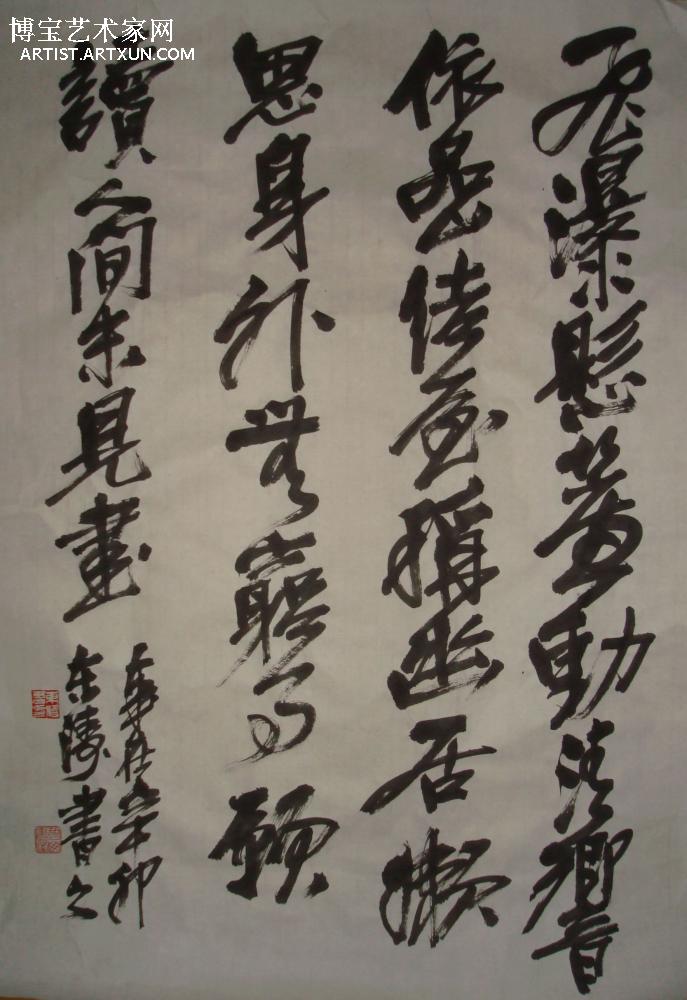 博宝艺术家网
ARTIST.ARTXUN.COM
飛瀑懸簾動清響
依嵒屋稱幽居懶
思身外無窮事願
讀人間未見書
在辛卯
东書之